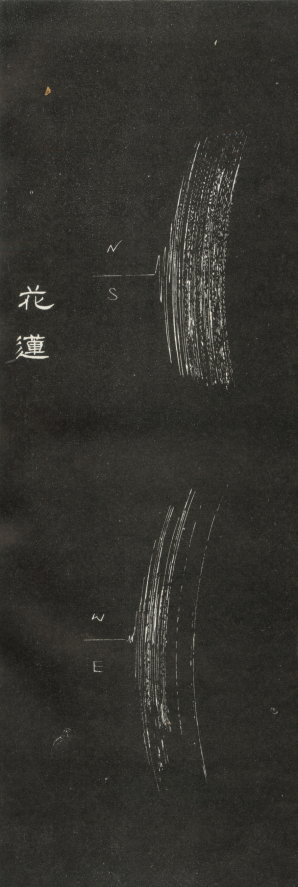 花蓮
N
S
W
E